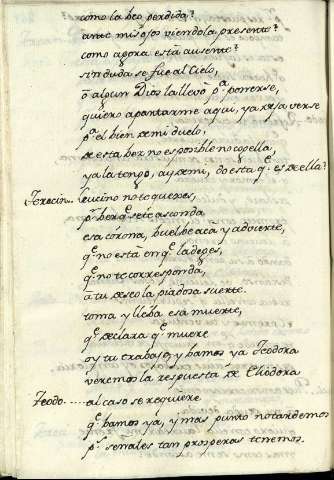 como la beo perdida?
ante mis ojos viendola presente?
como agora està ausente?
sin duda se fue al Cielo,
ò algun Dios la llevò pª ponerse,
quiero apartarme aqui, ya
pª el bien de mi duelo,
de esta bez no es posible no cogella,
ya la tengo, ay de mi, do esta qe es de ella?
Leucino no te quexes,
pr ber qe se te asconda
esa corona, buelbe acà y advierte,
qe no està en qe la dexes,
qe no te corresponda,
à tu deseo la piadosa suerte.
toma y lleba esa muerte,
qe declara qe muere
oy tu trabajo, y bamos ya Teodora
veremos la respuesta de Chodora
Teodo.... al caso se requiere
qe bamos ya, y mas punto no tardemos
ps señales tan prosperas tenemos.